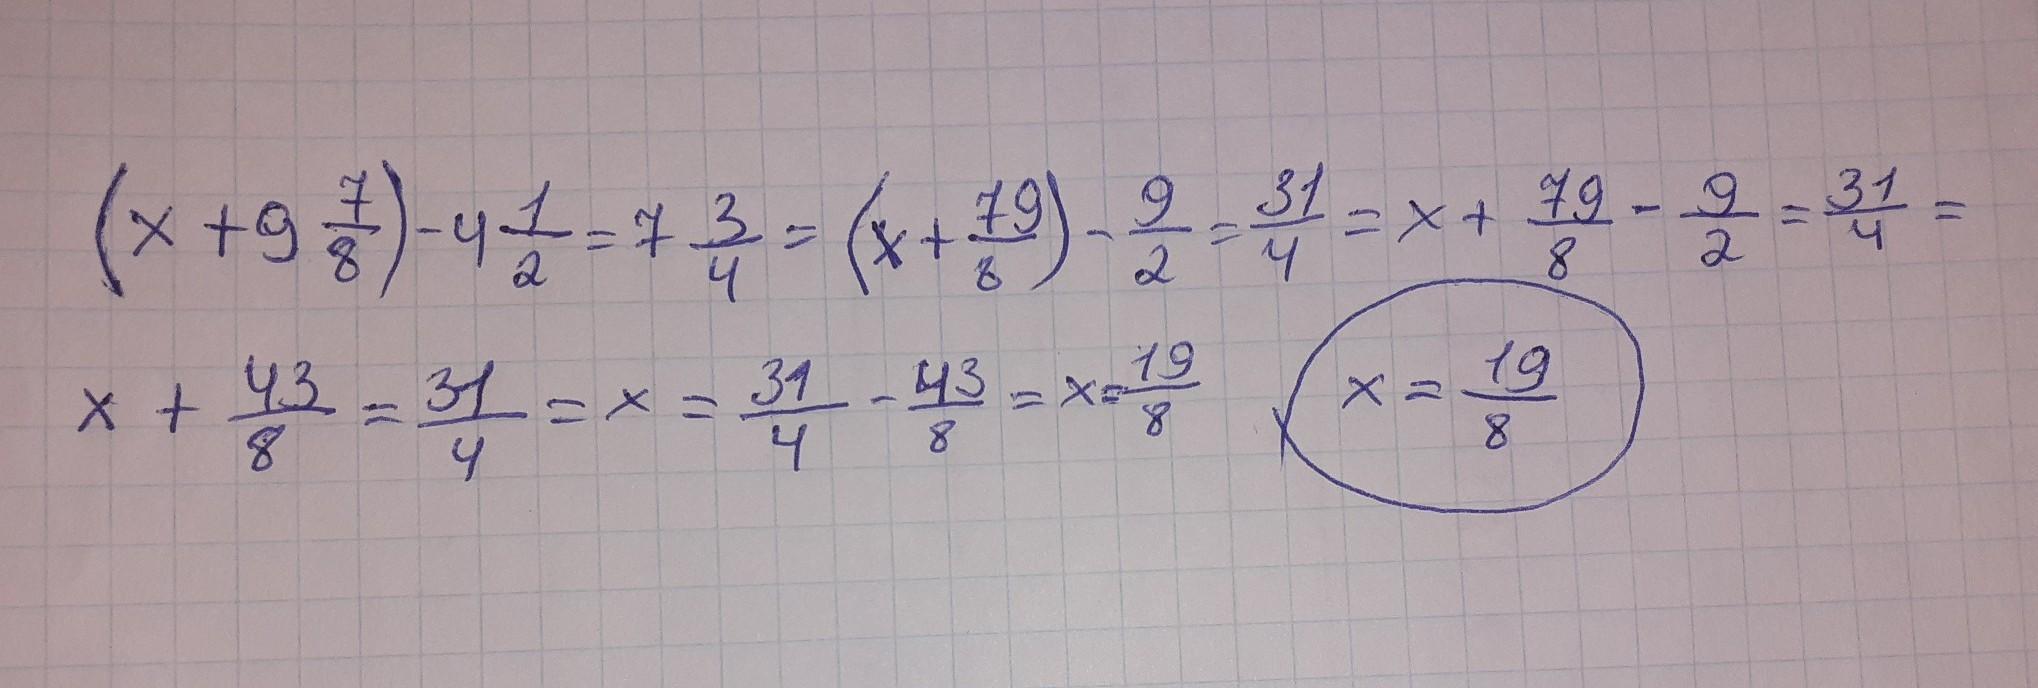 (x + 9 7/8) - 4 1/2 = 7 3/4 = (x + 79/8) - 9/2 = 31/4 = x + 79/8 - 9/2 = 31/4 =
x + 43/8 = 31/4 = x = 31/4 - 43/8 = x = 19/8 x = 19/8